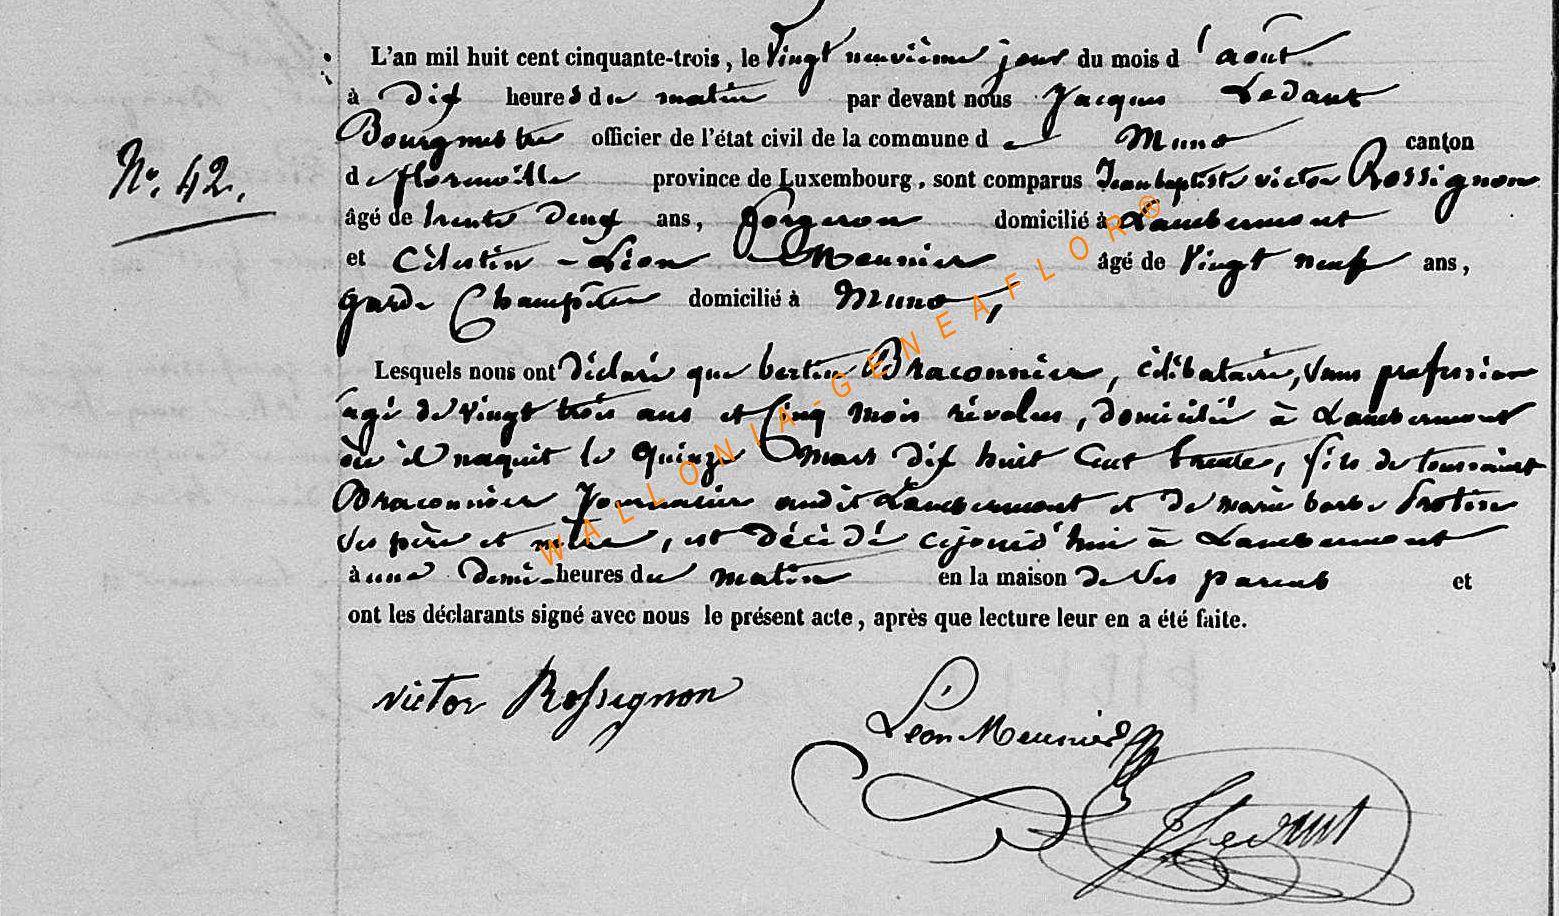 L'an mil huit cent cinquante-trois, le Vingt neuvième jour du mois d'août
à Dix heures du matin par devant nous Jacques Ledant
Bourgmestre officier de l'état civil de la commune de Muno canton
de florenville province de Luxembourg, sont comparus Jean baptiste victor Rossignon
N°. 42.
âgé de trente Deux ans, forgeron domicilié à Lambermont
et Célestin-Léon Meunier âgé de Vingt neuf ans,
garde Champêtre domicilié à Muno,
Lesquels nous ont Déclaré que bertin Braconnier, célibataire, sans profession
agé de vingt trois ans et Cinq mois révolus, domicilié à Lambermont
où il naquit le quinze Mars dix huit Cent trente, fils de toussaint
Braconnier Journalier audit Lambermont et de marie barbe Protin
ses père et mère, est décédé cejourd'hui à Lambermont
à une demi-heures du matin en la maison de ses parents et
ont les déclarants signé avec nous le présent acte, après que lecture leur en a été faite.
victor Rossignon
Léon Meunier
J Ledant
WALLONIA-GENEAFLOR®